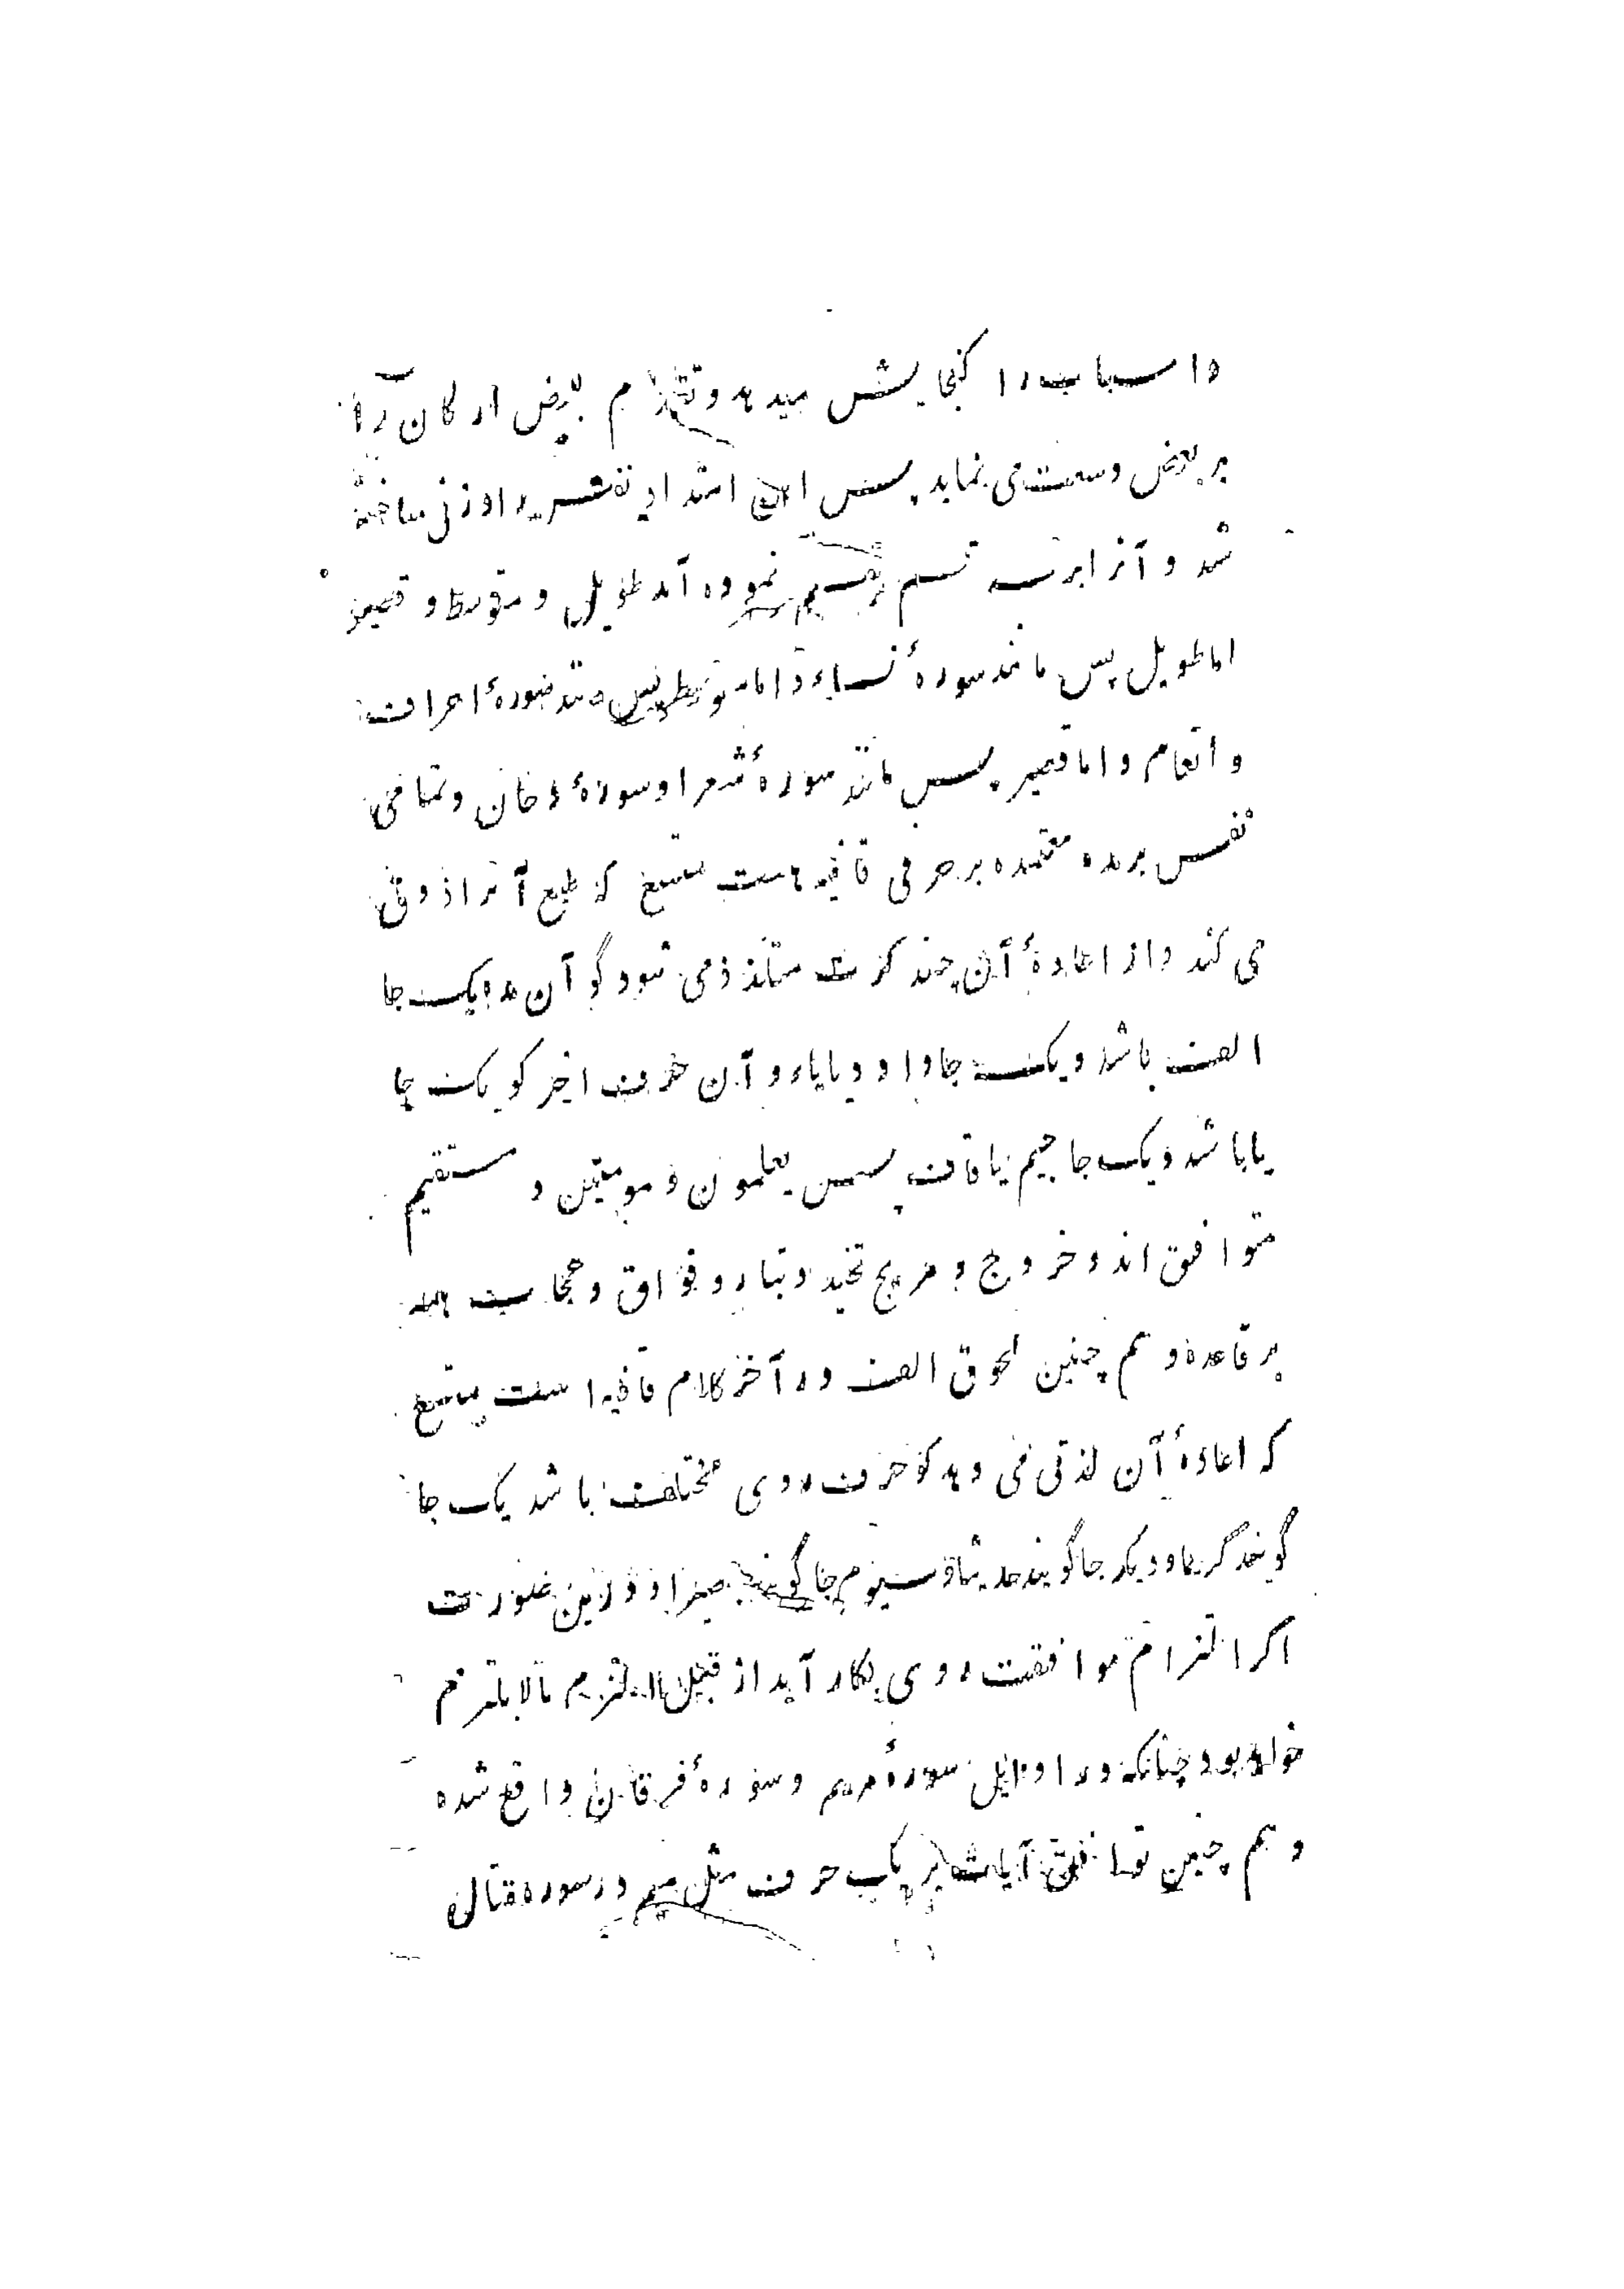 و اسباب را گنجایش میدهد و تقدم بعض ارکان را
بر بعض وسعت می نماید پس این امتداد نفس را وزنی ساخته
شد و آنرا بر سه قسم تقسیم نموده آمد طویل و متوسط و قصیر
اما طویل پس مانند سورهٔ نساء و اما متوسط پس مانند سورهٔ اعراف
و انعام و اما قصیر پس مانند سورهٔ شعرا و سورهٔ دخان و تمامی
نفس بر مده معتمده بر حرفی قافیه هست متسع که طبع آنرا ذوق
می کند و از اعادهٔ آن چند کرت متلذذ می شود گو آن مده یک جا
الف باشد و یک جا واو و یا یاء و آن حرف اخیر گو یک جا
با باشد و یک جا جیم یا قاف پس یعلمون و مومنین و مستقیم
متوافق اند و خروج و مریج و تحید و تبار و فواق و عجاب همه
بر قاعده و هم چنین لحوق الف در آخر کلام قافیه است متسع
که اعادهٔ آن لذتی می دهد گو حرف روی مختلف باشد یک جا
گویند کریما و دیگر جا گویند حدیثا و سیوم جا گویند بصیرا و درین صورت
اگر التزام موافقت روی بکار آید از قبیل التزام مالا یلتزم
خواهد بود چنانکه در اوائل سورهٔ مریم و سورهٔ فرقان واقع شده
و هم چنین توافق آیات بر یک حرف مثل میم در سوره قتال